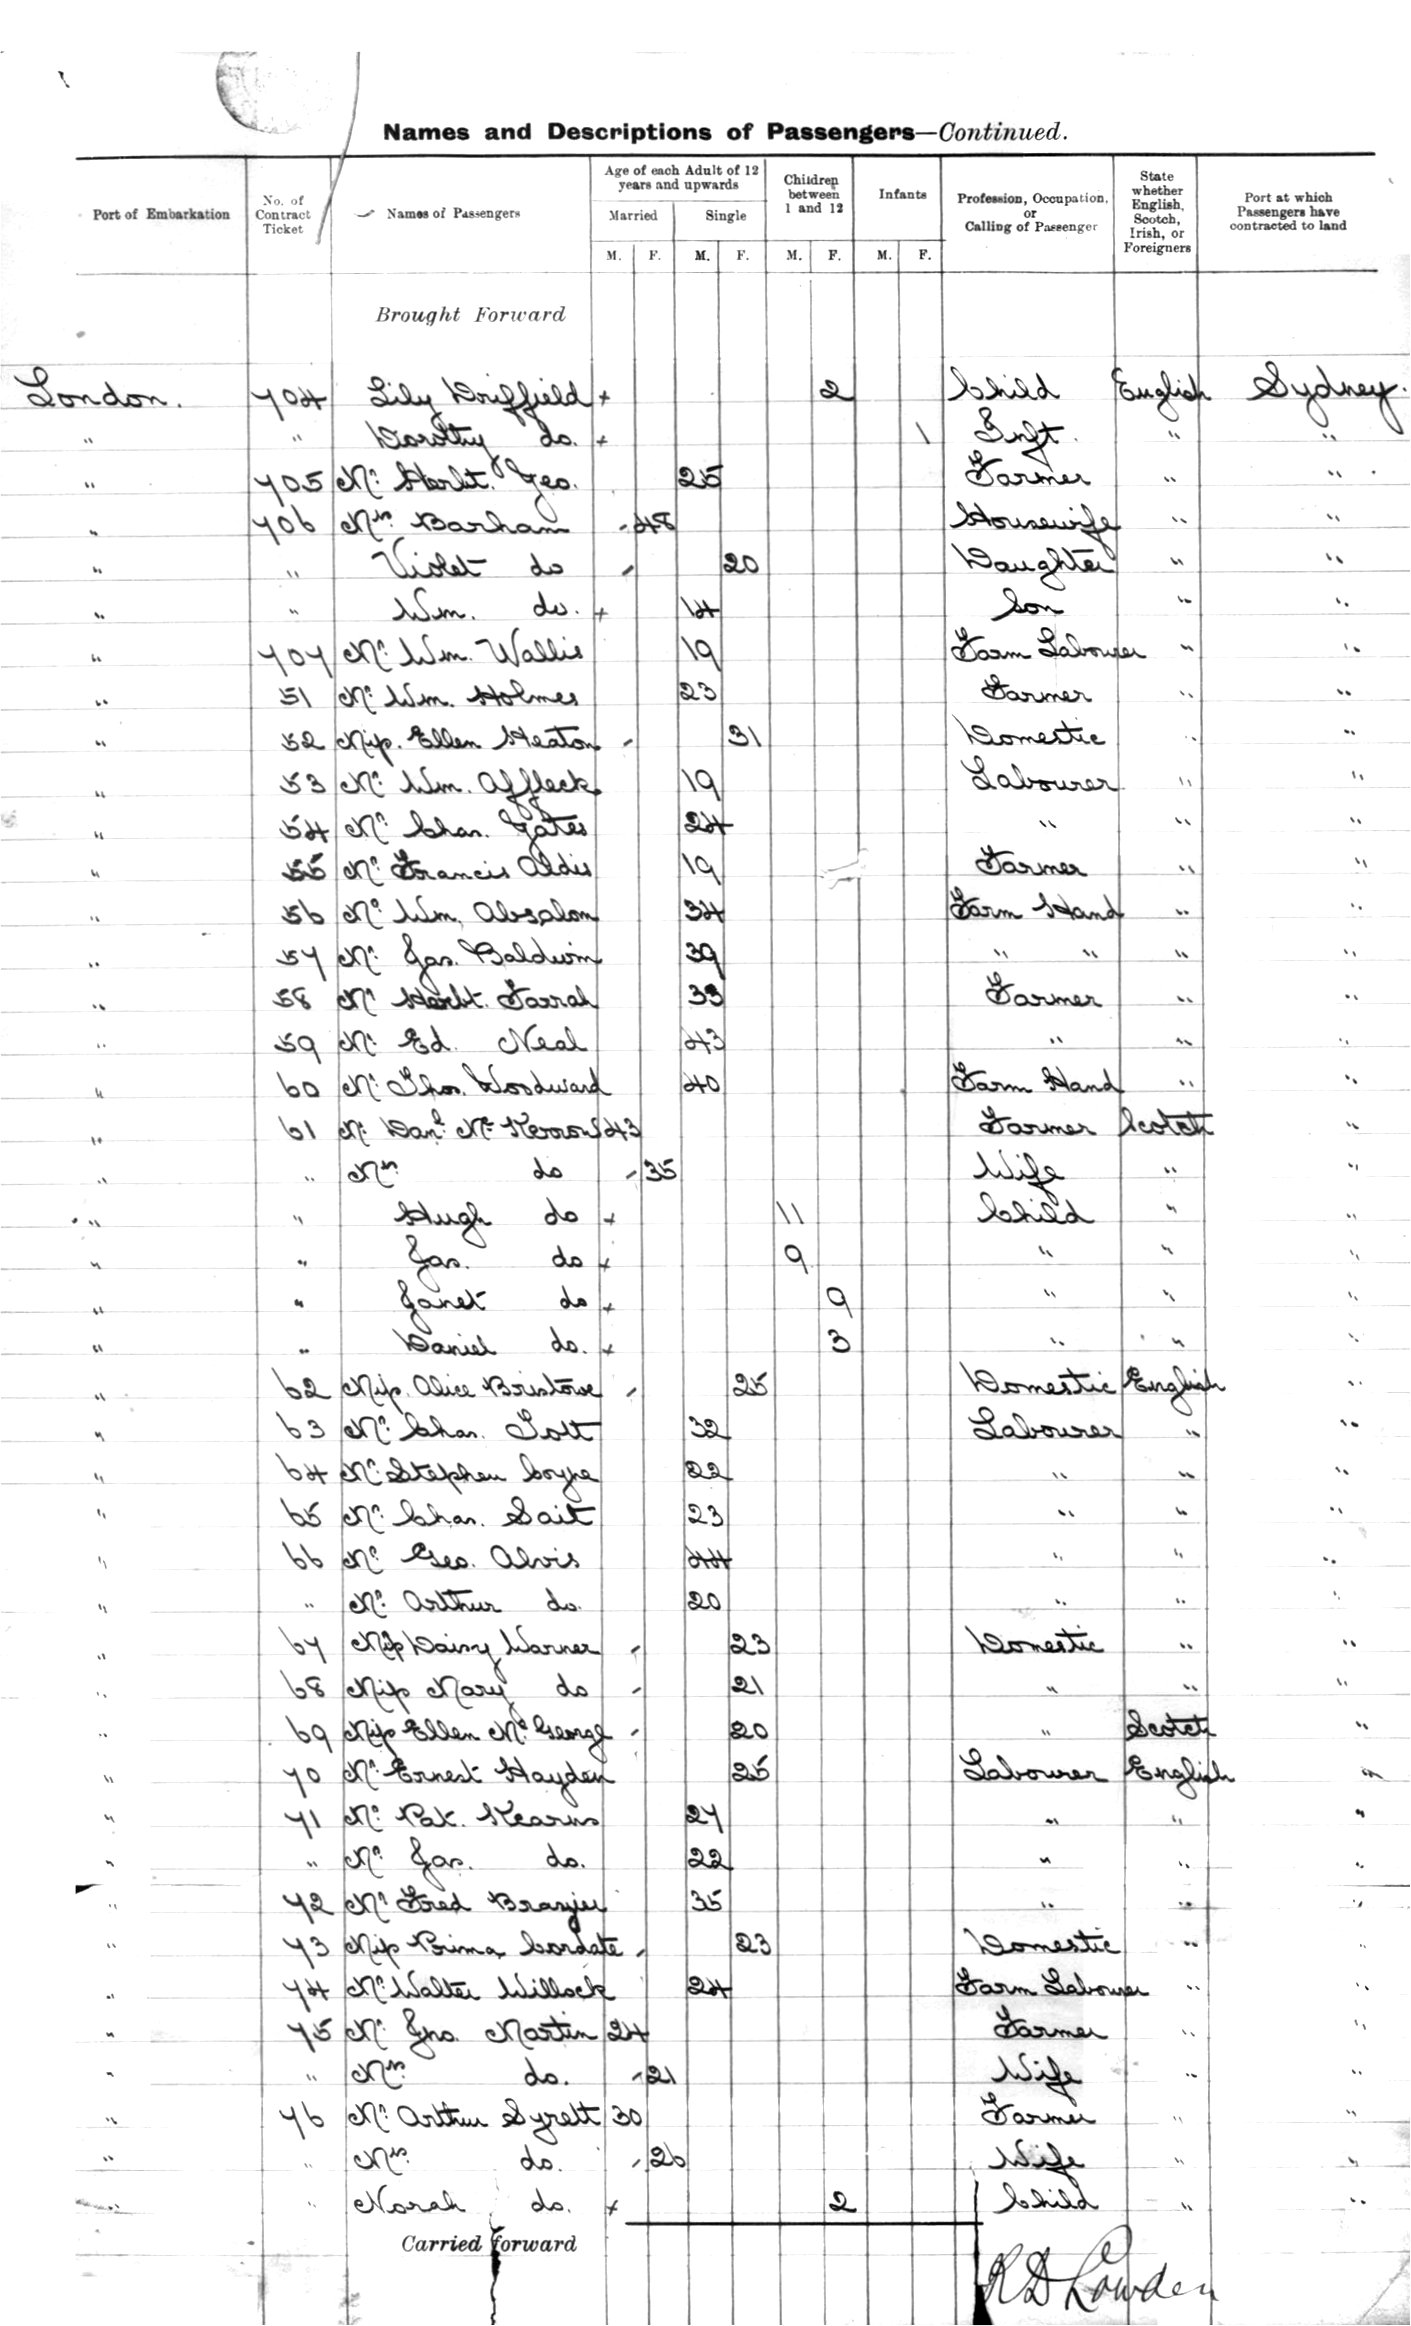 Names and Descriptions of Passengers—Continued.
Port of Embarkation No. of Contract Ticket Names of Passengers Age of each Adult of 12 years and upwards Married Single M. F. M. F. Children between 1 and 12 M. F. Infants M. F. Profession, Occupation, or Calling of Passenger State whether English, Scotch, Irish, or Foreigners Port at which Passengers have contracted to land
Brought Forward
London. 704 Lily Driffield + 2 Child English Sydney.
" " Dorothy do. + 1 Inft. " "
" 705 Mr. Herbt. Geo. 25 Farmer " "
" 706 Mrs. Barham - 48 Housewife " "
" " Violet do - 20 Daughter " "
" " Wm. do. + 14 Son " "
" 707 Mr. Wm. Wallis 19 Farm Labourer " "
" 51 Mr. Wm. Holmes 23 Farmer " "
" 52 Miss. Ellen Heaton - 31 Domestic " "
" 53 Mr. Wm. Affleck 19 Labourer " "
" 54 Mr. Chas. Gates 24 " " "
" 55 Mr. Francis Aldis 19 Farmer " "
" 56 Mr. Wm. Absalom 34 Farm Hand " "
" 57 Mr. Jas. Baldwin 39 " " " "
" 58 Mr. Herbt. Farrah 33 Farmer " "
" 59 Mr. Ed. Neal 43 " " "
" 60 Mr. Thos. Woodward 40 Farm Hand " "
" 61 Mr. Danl. Mc 43 Farmer Scotch "
" " Mrs. do - 35 Wife " "
" " Hugh do + 11 Child " "
" " Jas. do + 9 " " "
" " Janet do + 9 " " "
" " Daniel do. + 3 " " "
" 62 Miss. Alice Bristowe - 25 Domestic English "
" 63 Mr. Chas. 32 Labourer " "
" 64 Mr. Stephen Coyne 22 " " "
" 65 Mr. Chas. Sait 23 " " "
" 66 Mr. Geo. Alvis 44 " " "
" " Mr. Arthur do. 20 " " "
" 67 Miss Daisy Warner - 23 Domestic " "
" 68 Miss Mary do - 21 " " "
" 69 Miss Ellen Mc George - 20 " Scotch "
" 70 Mr. Ernest Hayden 25 Labourer English "
" 71 Mr. Pat. Kearns 27 " " "
" " Mr. Jas. do. 22 " " "
" 72 Mr. Fred Brazier 35 " " "
" 73 Miss Prima Cordate - 23 Domestic " "
" 74 Mr. Walter Willock 24 Farm Labourer " "
" 75 Mr. Jno. Martin 24 Farmer " "
" " Mrs. do. - 21 Wife " "
" 76 Mr. Arthur Syrett 30 Farmer " "
" " Mrs. do. - 26 Wife " "
" " Norah do. + 2 Child " "
Carried forward
R D Lowden